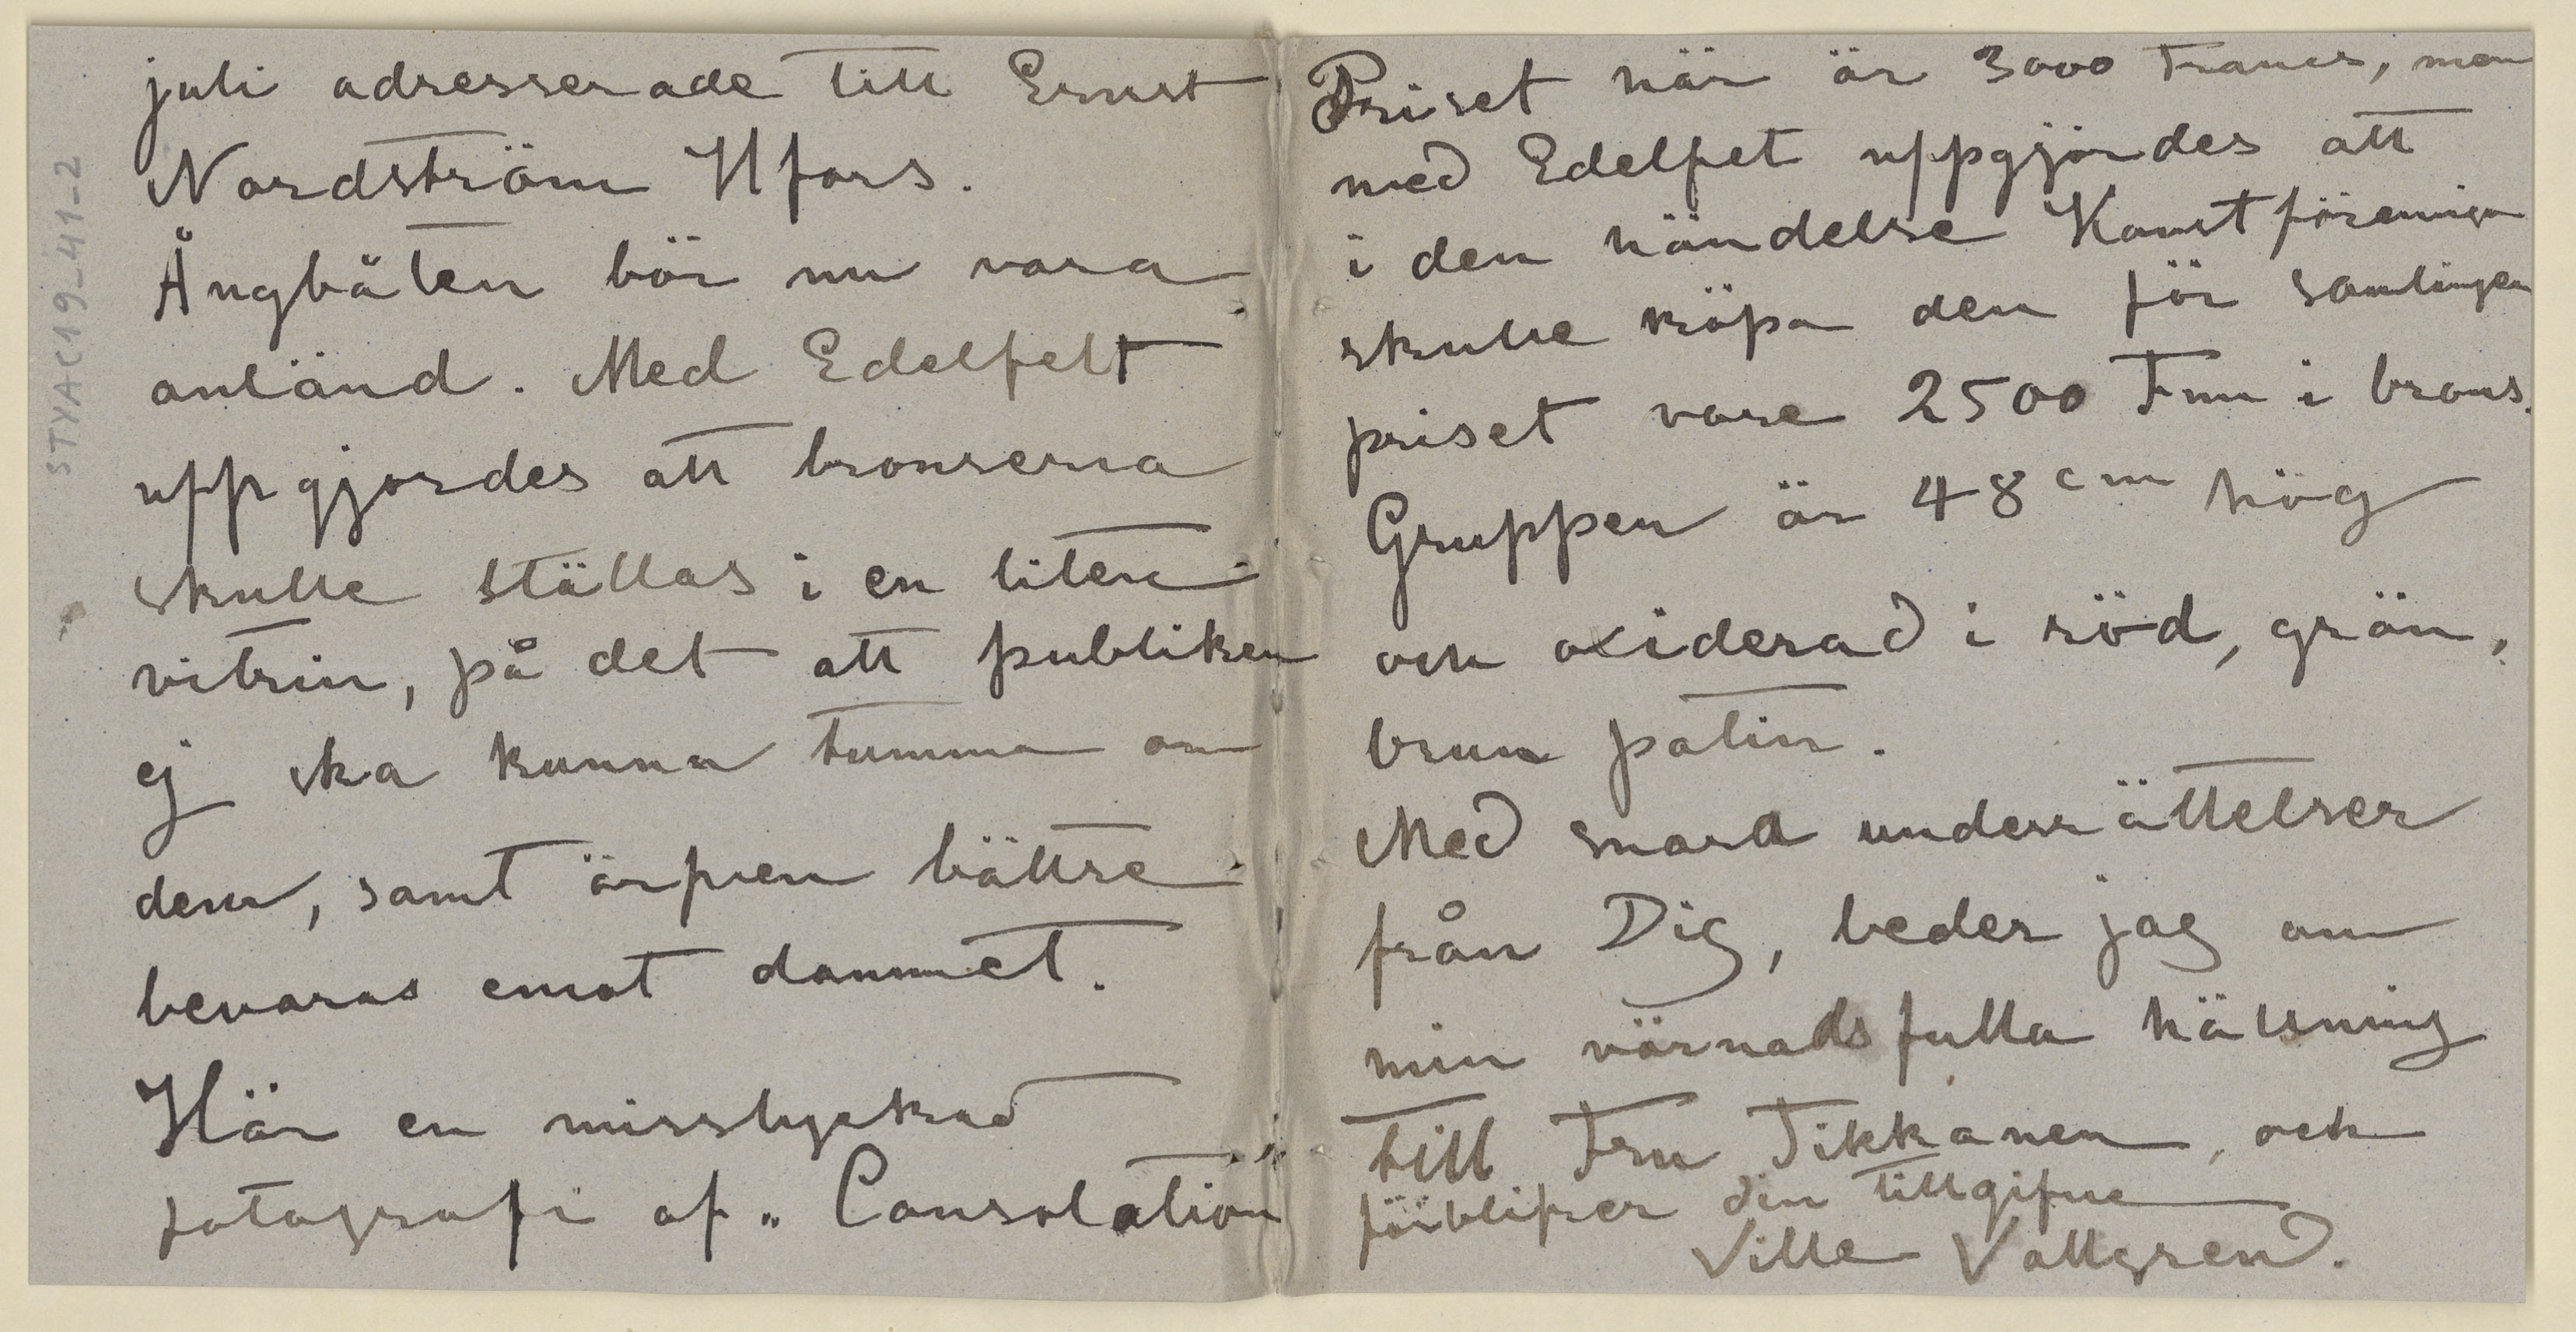 STYAC19-41-2
juli adresserade till Ernst
Nordström Hfors.
Ångbåten bör nu vara
anländ. Med Edelfelt
uppgjordes att bronserna
skulle ställas i en liten
vitrin, på det att publiken
ej ska kunna tumma om
dem, samt ärpen bättre
bevaras emot dammet.
Här en misslyckad
fotografi af „Consolation
Priset här är 3000 Francs, men
med Edelfet uppgjordes att
i den händelse Konstföreningen
skulle köpa den för samlingen
priset vore 2500 Fmr i brons.
Gruppen är 48 cm hög
och oxiderad i röd, grön,
brun patin.
Med snara underrättelser
från Dig, beder jag om
min vörnadsfulla hälsning
till Fru Tikkanen, och
förblifver din tillgifne
Ville Vallgren.